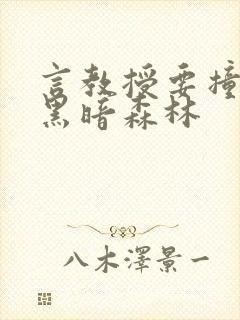 言教授要撞
黑暗森林
八木澤景一